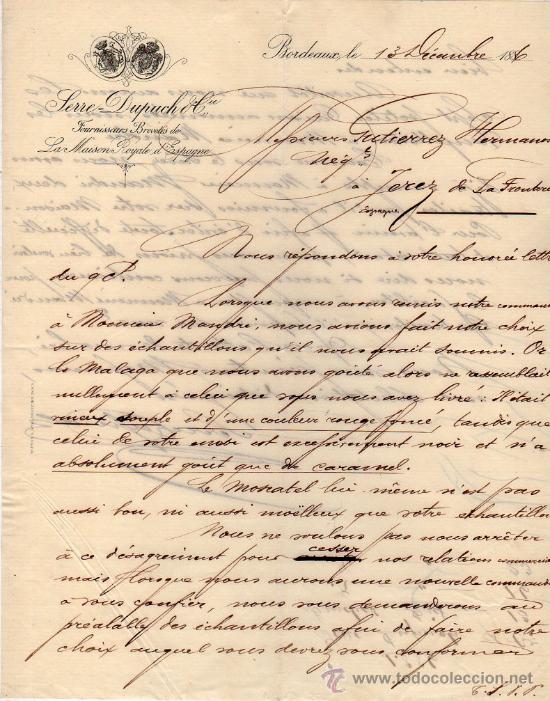 Bordeaux, le 13 Décembre 1886
Serre-Dupuch & Cie
Fournisseurs Brevetés de
La Maison Royale d'Espagne
Messieurs Gutierrez Hermanos
Négts
à Jerez de La Frontera
Espagne
Nous répondons à votre honorée lettre
du 9 ct.
Lorsque nous avons remis notre commande
à Monsieur Mandri, nous avions fait notre choix
sur des échantillons qu'il nous avait soumis. Or
le Malaga que nous avons goûté alors ne ressemblait
nullement à celui que vous nous avez livré : il était
vieux souple et d'une couleur rouge foncé, tandis que
celui de votre envoi est excessivement noir et n'a
absolument goût que de caramel.
Le Moscatel lui-même n'est pas
aussi bon, ni aussi moëlleux que votre échantillon
Nous ne voulons pas nous arrêter
à ce désagrément pour cesser nos relations commerciales
mais lorsque nous aurons une nouvelle commande
à vous confier, nous vous demanderons au
préalable des échantillons afin de faire notre
choix auquel vous devrez vous conformer
T.S.V.P.
todocoleccion
www.todocoleccion.net